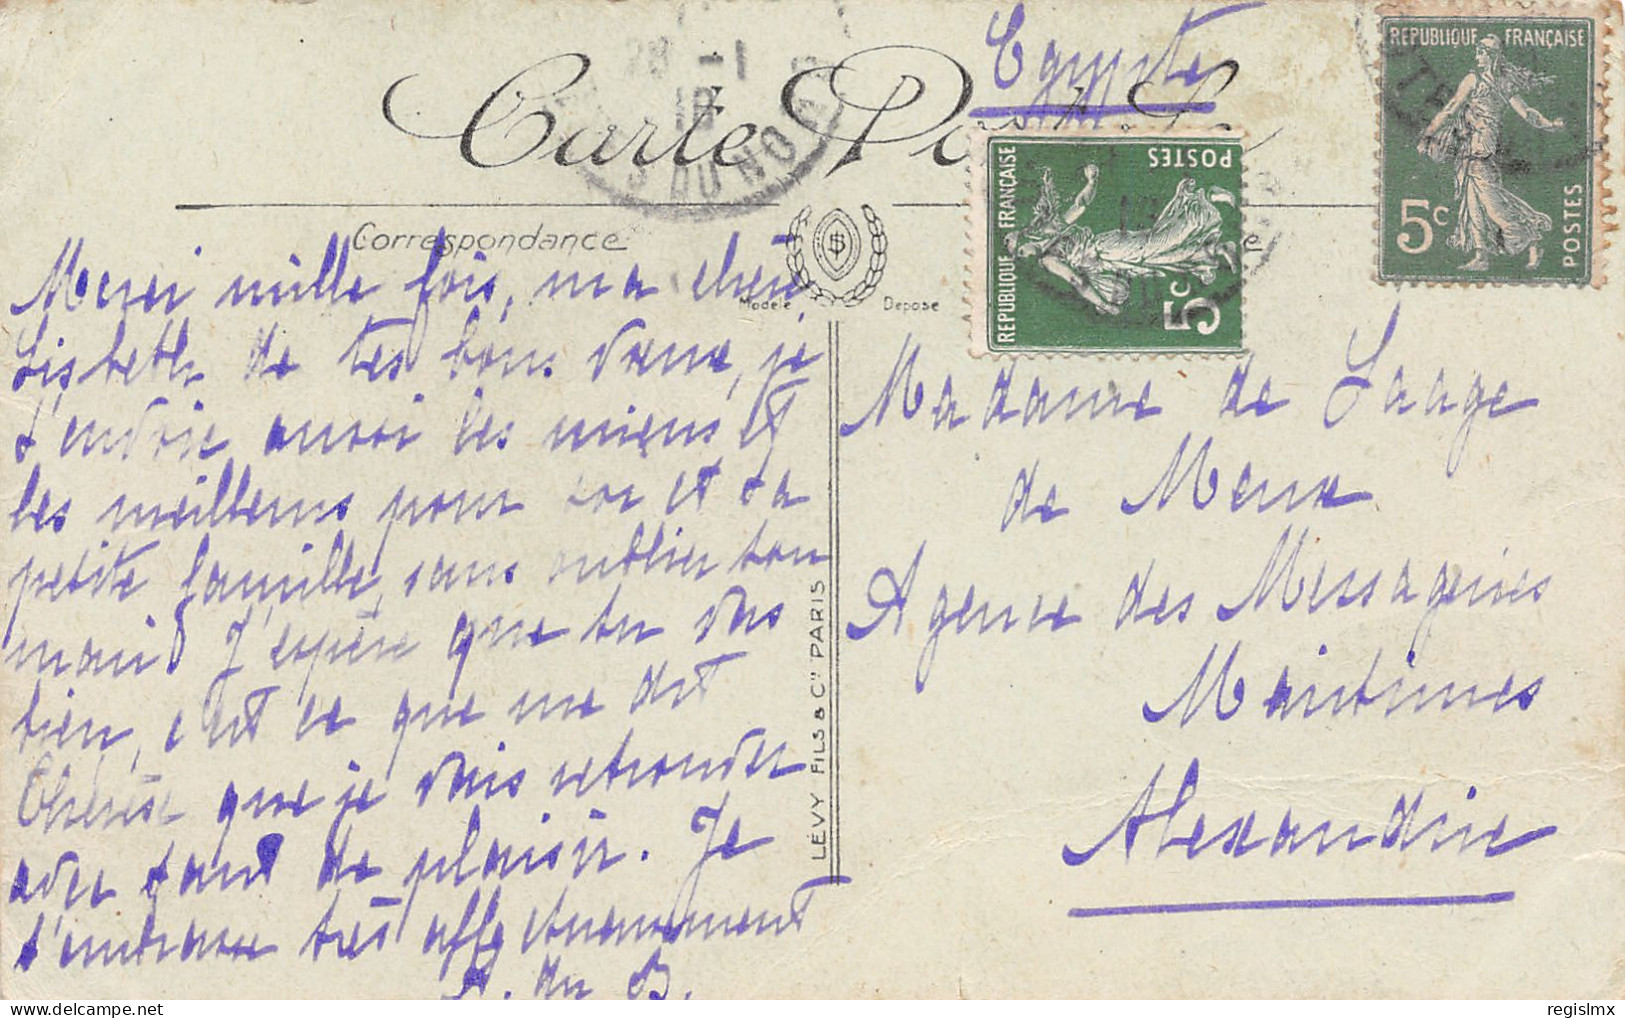 Egypte
Carte Postale
REPUBLIQUE FRANÇAISE
5c POSTES
REPUBLIQUE FRANÇAISE
5c POSTES
28 -1
18
DU NORD
Correspondance
Modèle Déposé
Merci mille fois, ma chère
Lisbeth de tes bons vœux, je
t'envoie aussi les miens et
les meilleurs pour toi et ta
petite famille, sans oublier ton
mari. J'espère que tu vas
bien, c'est ce que me dit
Thérèse que je vais retrouver
avec tant de plaisir. Je
t'embrasse très affectueusement
A. du B.
LÉVY FILS & Cie PARIS
Madame de Laage
de Meux
Agence des Messageries
Maritimes
Alexandrie
regislmx